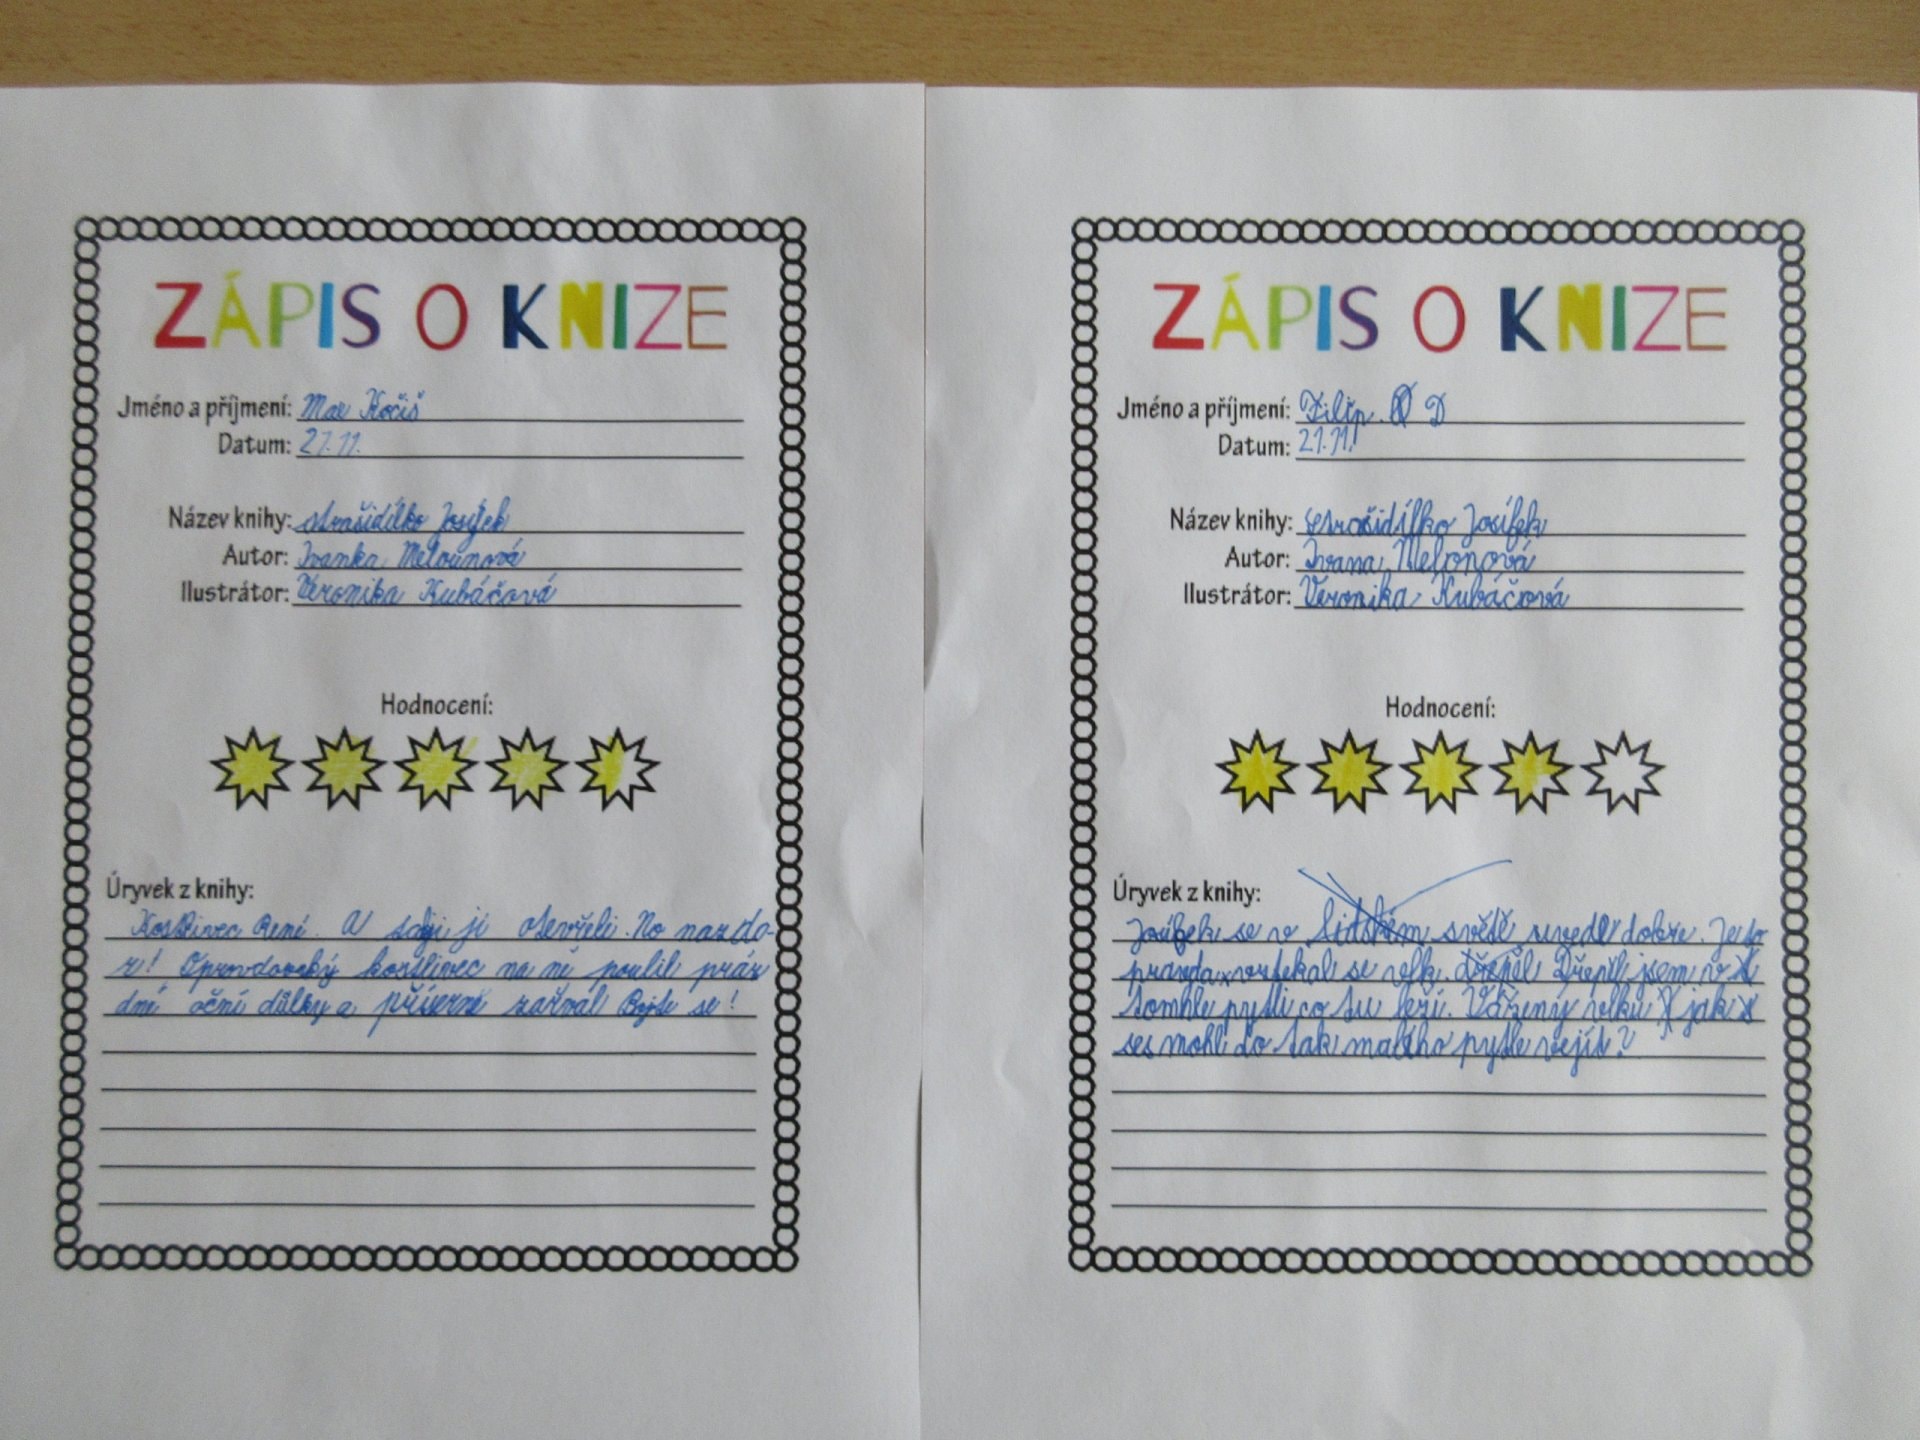 ZÁPIS O KNIZE
Jméno a příjmení: Max Kočiš
Datum: 21.11.
Název knihy: strašidílko Josífek
Autor: Ivanka Melounová
Ilustrátor: Veronika Kubáčová
Hodnocení:
Úryvek z knihy:
Kostlivec René. U ji otevřeli. No nazdo-
r! Opravdovský kostlivec na ně poulil práz
dné oční důlky a příšerně zařval Bojte se!
ZÁPIS O KNIZE
Jméno a příjmení: Filip. D
Datum: 21.11.
Název knihy: strašidílko Josífek
Autor: Ivana Melonová
Ilustrátor: Veronika Kubáčová
Hodnocení:
Úryvek z knihy:
Josífek se v lidském světě uvedl dobře. Je to
pravda, vztekal se vlk. Dřepěl jsem v
tomhle pytli co tu leží. Vážený vlku jak
ses mohl do tak malého pytle vejít?